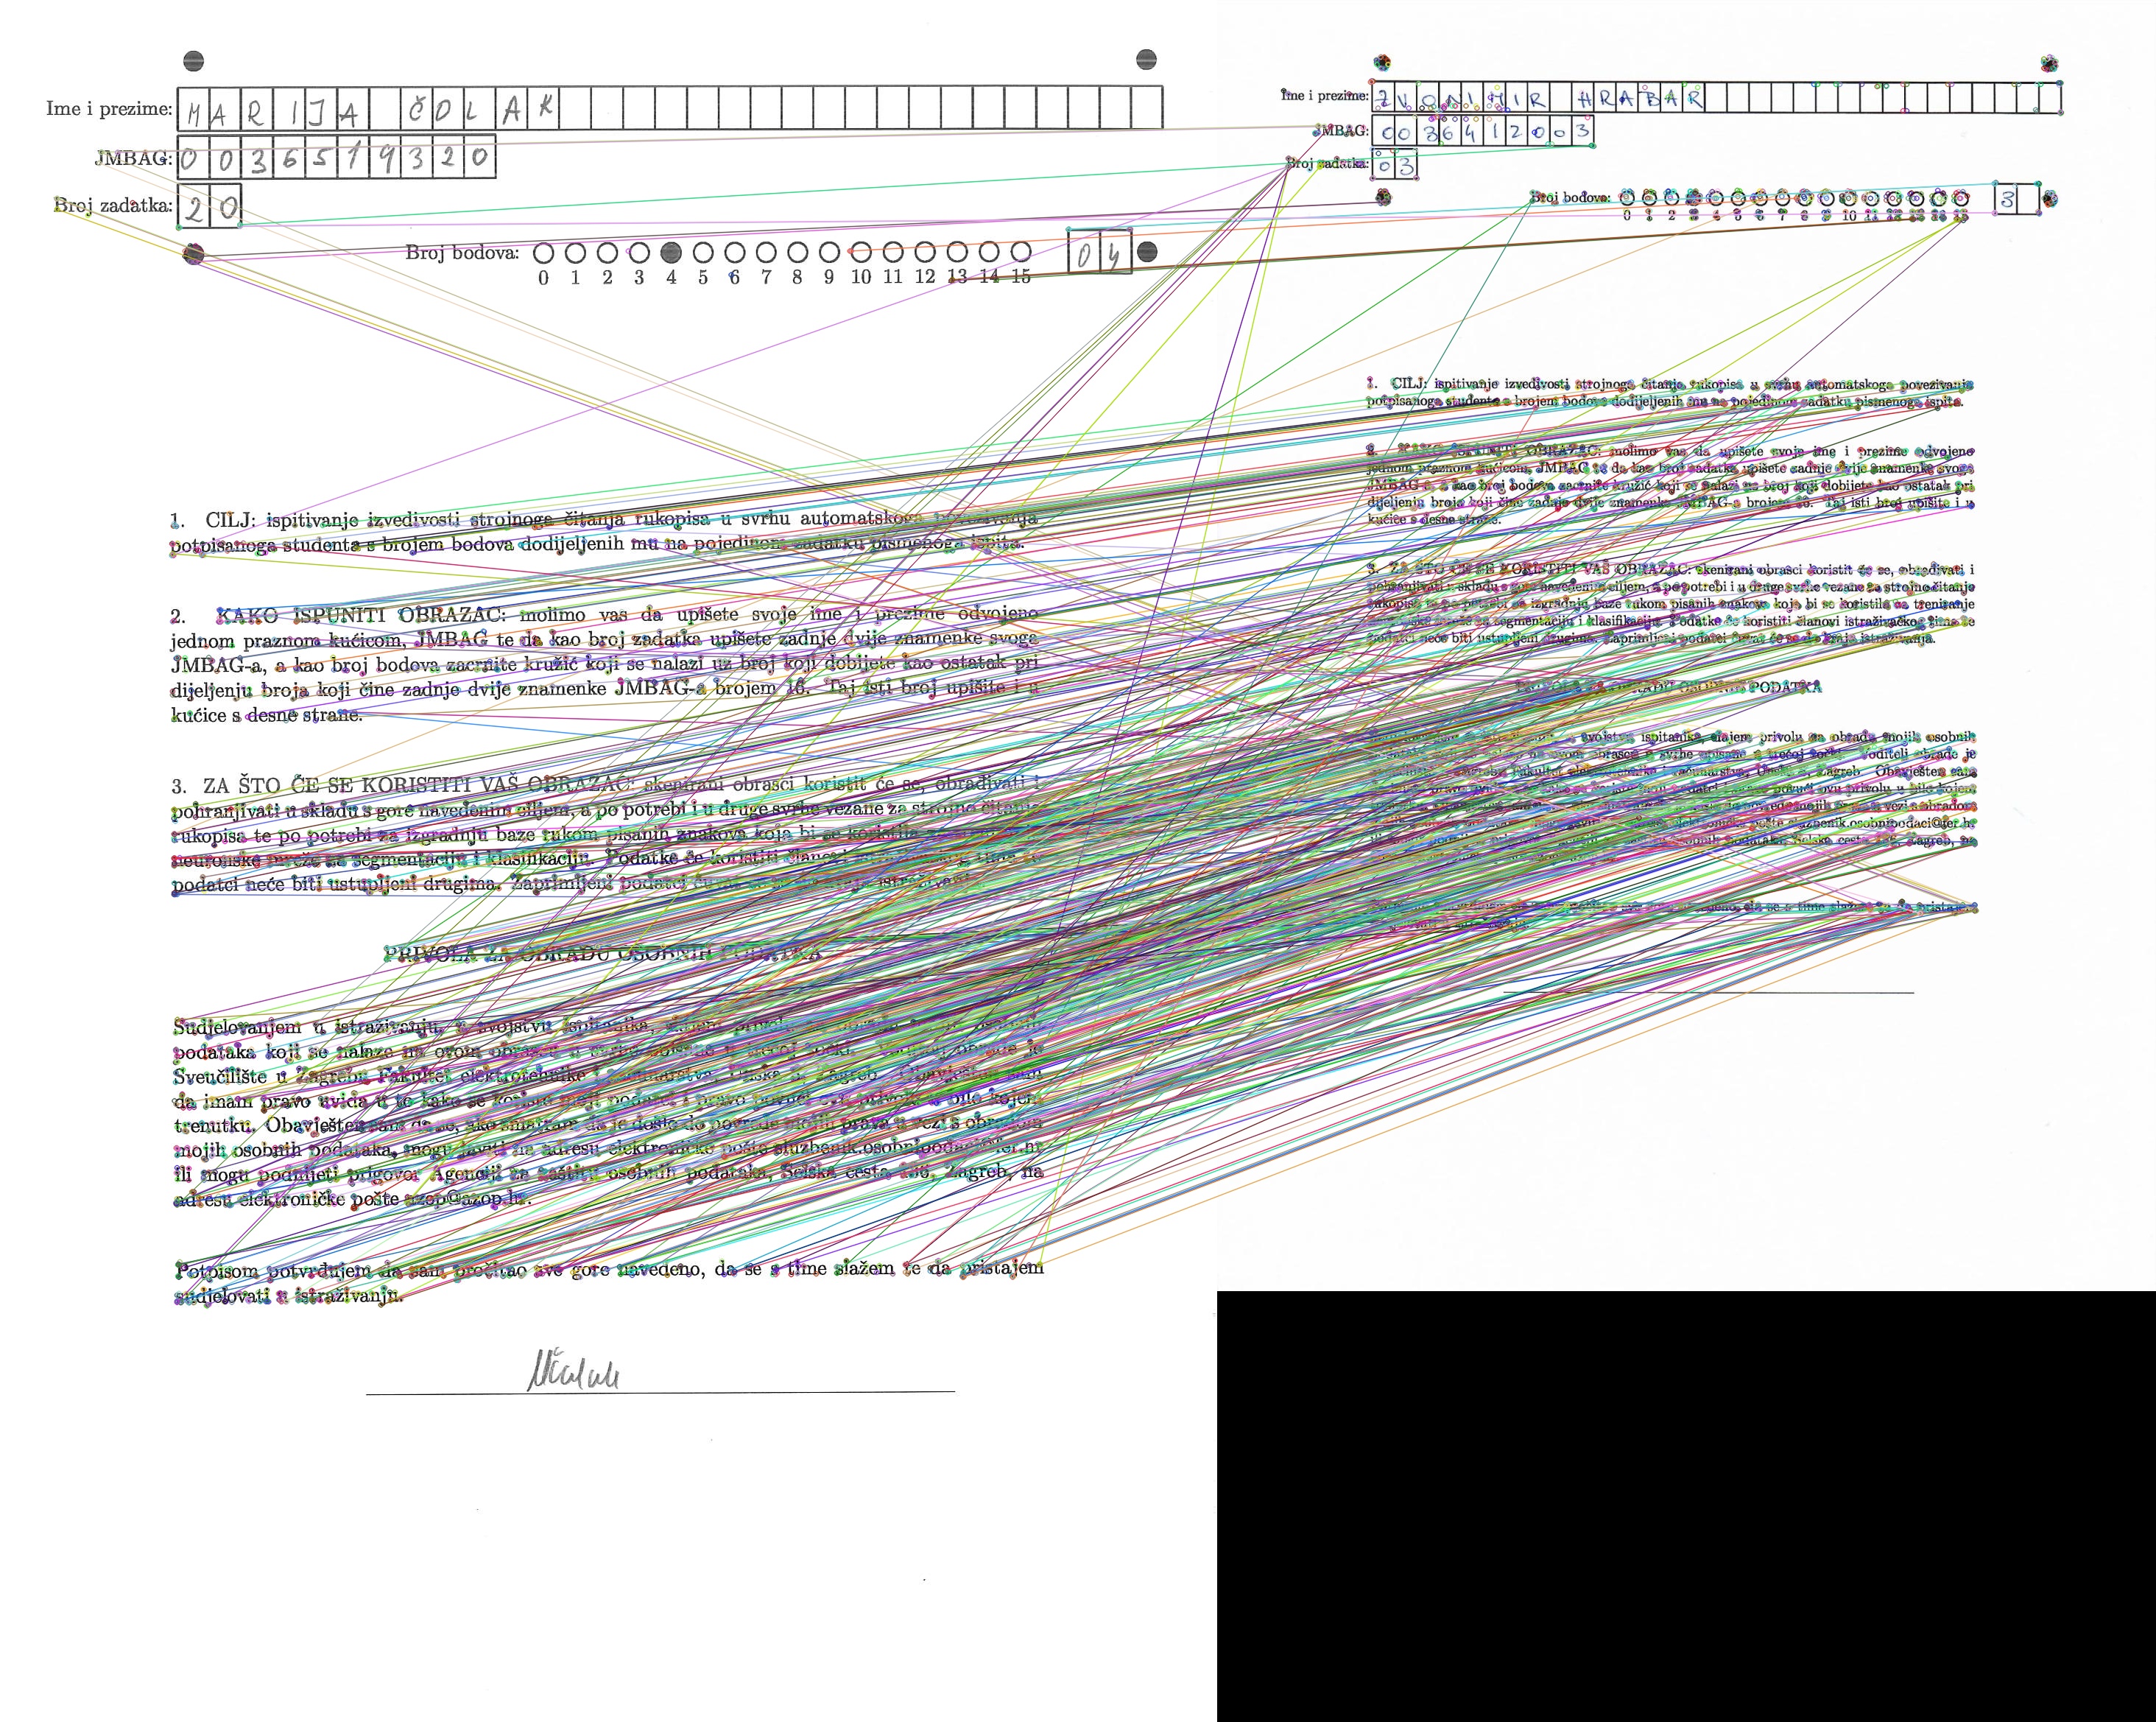 Ime i prezime: MARIJA ČOLAK
JMBAG: 0036519320
Broj zadatka: 20
Broj bodova: 0 1 2 3 4 5 6 7 8 9 10 11 12 13 14 15 04
1. CILJ: ispitivanje izvedivosti strojnoga čitanja rukopisa u svrhu automatskoga povezivanja
potpisanoga studenta s brojem bodova dodijeljenih mu na pojedinom zadatku pismenoga ispita.
2. KAKO ISPUNITI OBRAZAC: molimo vas da upišete svoje ime i prezime odvojeno
jednom praznom kućicom, JMBAG te da kao broj zadatka upišete zadnje dvije znamenke svoga
JMBAG-a, a kao broj bodova zacrnite kružić koji se nalazi uz broj koji dobijete kao ostatak pri
dijeljenju broja koji čine zadnje dvije znamenke JMBAG-a brojem 16. Taj isti broj upišite i u
kućice s desne strane.
3. ZA ŠTO ĆE SE KORISTITI VAŠ OBRAZAC: skenirani obrasci koristit će se, obrađivati i
pohranjivati u skladu s gore navedenim ciljem, a po potrebi i u druge svrhe vezane za strojno čitanje
rukopisa te po potrebi za izgradnju baze rukom pisanih znakova koja bi se koristila za treniranje
neuronske mreže za segmentaciju i klasifikaciju. Podatke će koristiti članovi istraživačkog tima te
podatci neće biti ustupljeni drugima. Zaprimljeni podatci čuvat će se do kraja istraživanja.
PRIVOLA ZA OBRADU OSOBNIH PODATAKA
Sudjelovanjem u istraživanju, u svojstvu ispitanika, dajem privolu za obradu mojih osobnih
podataka koji se nalaze na ovom obrascu u svrhe opisane u trećoj točki. Voditelj obrade je
Sveučilište u Zagrebu Fakultet elektrotehnike i računarstva, Unska 3, Zagreb. Obavješten sam
da imam pravo uvida u to kako se koriste moji podatci i pravo povući ovu privolu u bilo kojem
trenutku. Obavješten sam da se, ako smatram da je došlo do povrede mojih prava u vezi s obradom
mojih osobnih podataka, mogu javiti na adresu elektroničke pošte sluzbenik.osobnipodaci@fer.hr
ili mogu podnijeti prigovor Agenciji za zaštitu osobnih podataka, Selska cesta 136, Zagreb, na
adresu elektroničke pošte azop@azop.hr.
Potpisom potvrđujem da sam pročitao sve gore navedeno, da se s time slažem te da pristajem
sudjelovati u istraživanju.
Ime i prezime: ZVONIMIR HRABAR
JMBAG: 0036412003
Broj zadatka: 03
Broj bodova: 0 1 2 3 4 5 6 7 8 9 10 11 12 13 14 15 3
1. CILJ: ispitivanje izvedivosti strojnoga čitanja rukopisa u svrhu automatskoga povezivanja
potpisanoga studenta s brojem bodova dodijeljenih mu na pojedinom zadatku pismenoga ispita.
2. KAKO ISPUNITI OBRAZAC: molimo vas da upišete svoje ime i prezime odvojeno
jednom praznom kućicom, JMBAG te da kao broj zadatka upišete zadnje dvije znamenke svoga
JMBAG-a, a kao broj bodova zacrnite kružić koji se nalazi uz broj koji dobijete kao ostatak pri
dijeljenju broja koji čine zadnje dvije znamenke JMBAG-a brojem 16. Taj isti broj upišite i u
kućice s desne strane.
3. ZA ŠTO ĆE SE KORISTITI VAŠ OBRAZAC: skenirani obrasci koristit će se, obrađivati i
pohranjivati u skladu s gore navedenim ciljem, a po potrebi i u druge svrhe vezane za strojno čitanje
rukopisa te po potrebi za izgradnju baze rukom pisanih znakova koja bi se koristila za treniranje
segmentaciju i klasifikaciju. Podatke će koristiti članovi istraživačkog tima te
podatci neće biti ustupljeni drugima. Zaprimljeni podatci čuvat će se do kraja istraživanja.
PRIVOLA ZA OBRADU OSOBNIH PODATAKA
svojstvu ispitanika, dajem privolu za obradu mojih osobnih
na ovom obrascu u svrhe opisane u trećoj točki. Voditelj obrade je
Zagrebu Fakultet elektrotehnike i računarstva, Unska 3, Zagreb. Obavješten sam
povući ovu privolu u bilo kojem
u vezi s obradom
elektroničke pošte sluzbenik.osobnipodaci@fer.hr
osobnih podataka, Selska cesta 136, Zagreb, na
navedeno, da se s time slažem te da pristajem